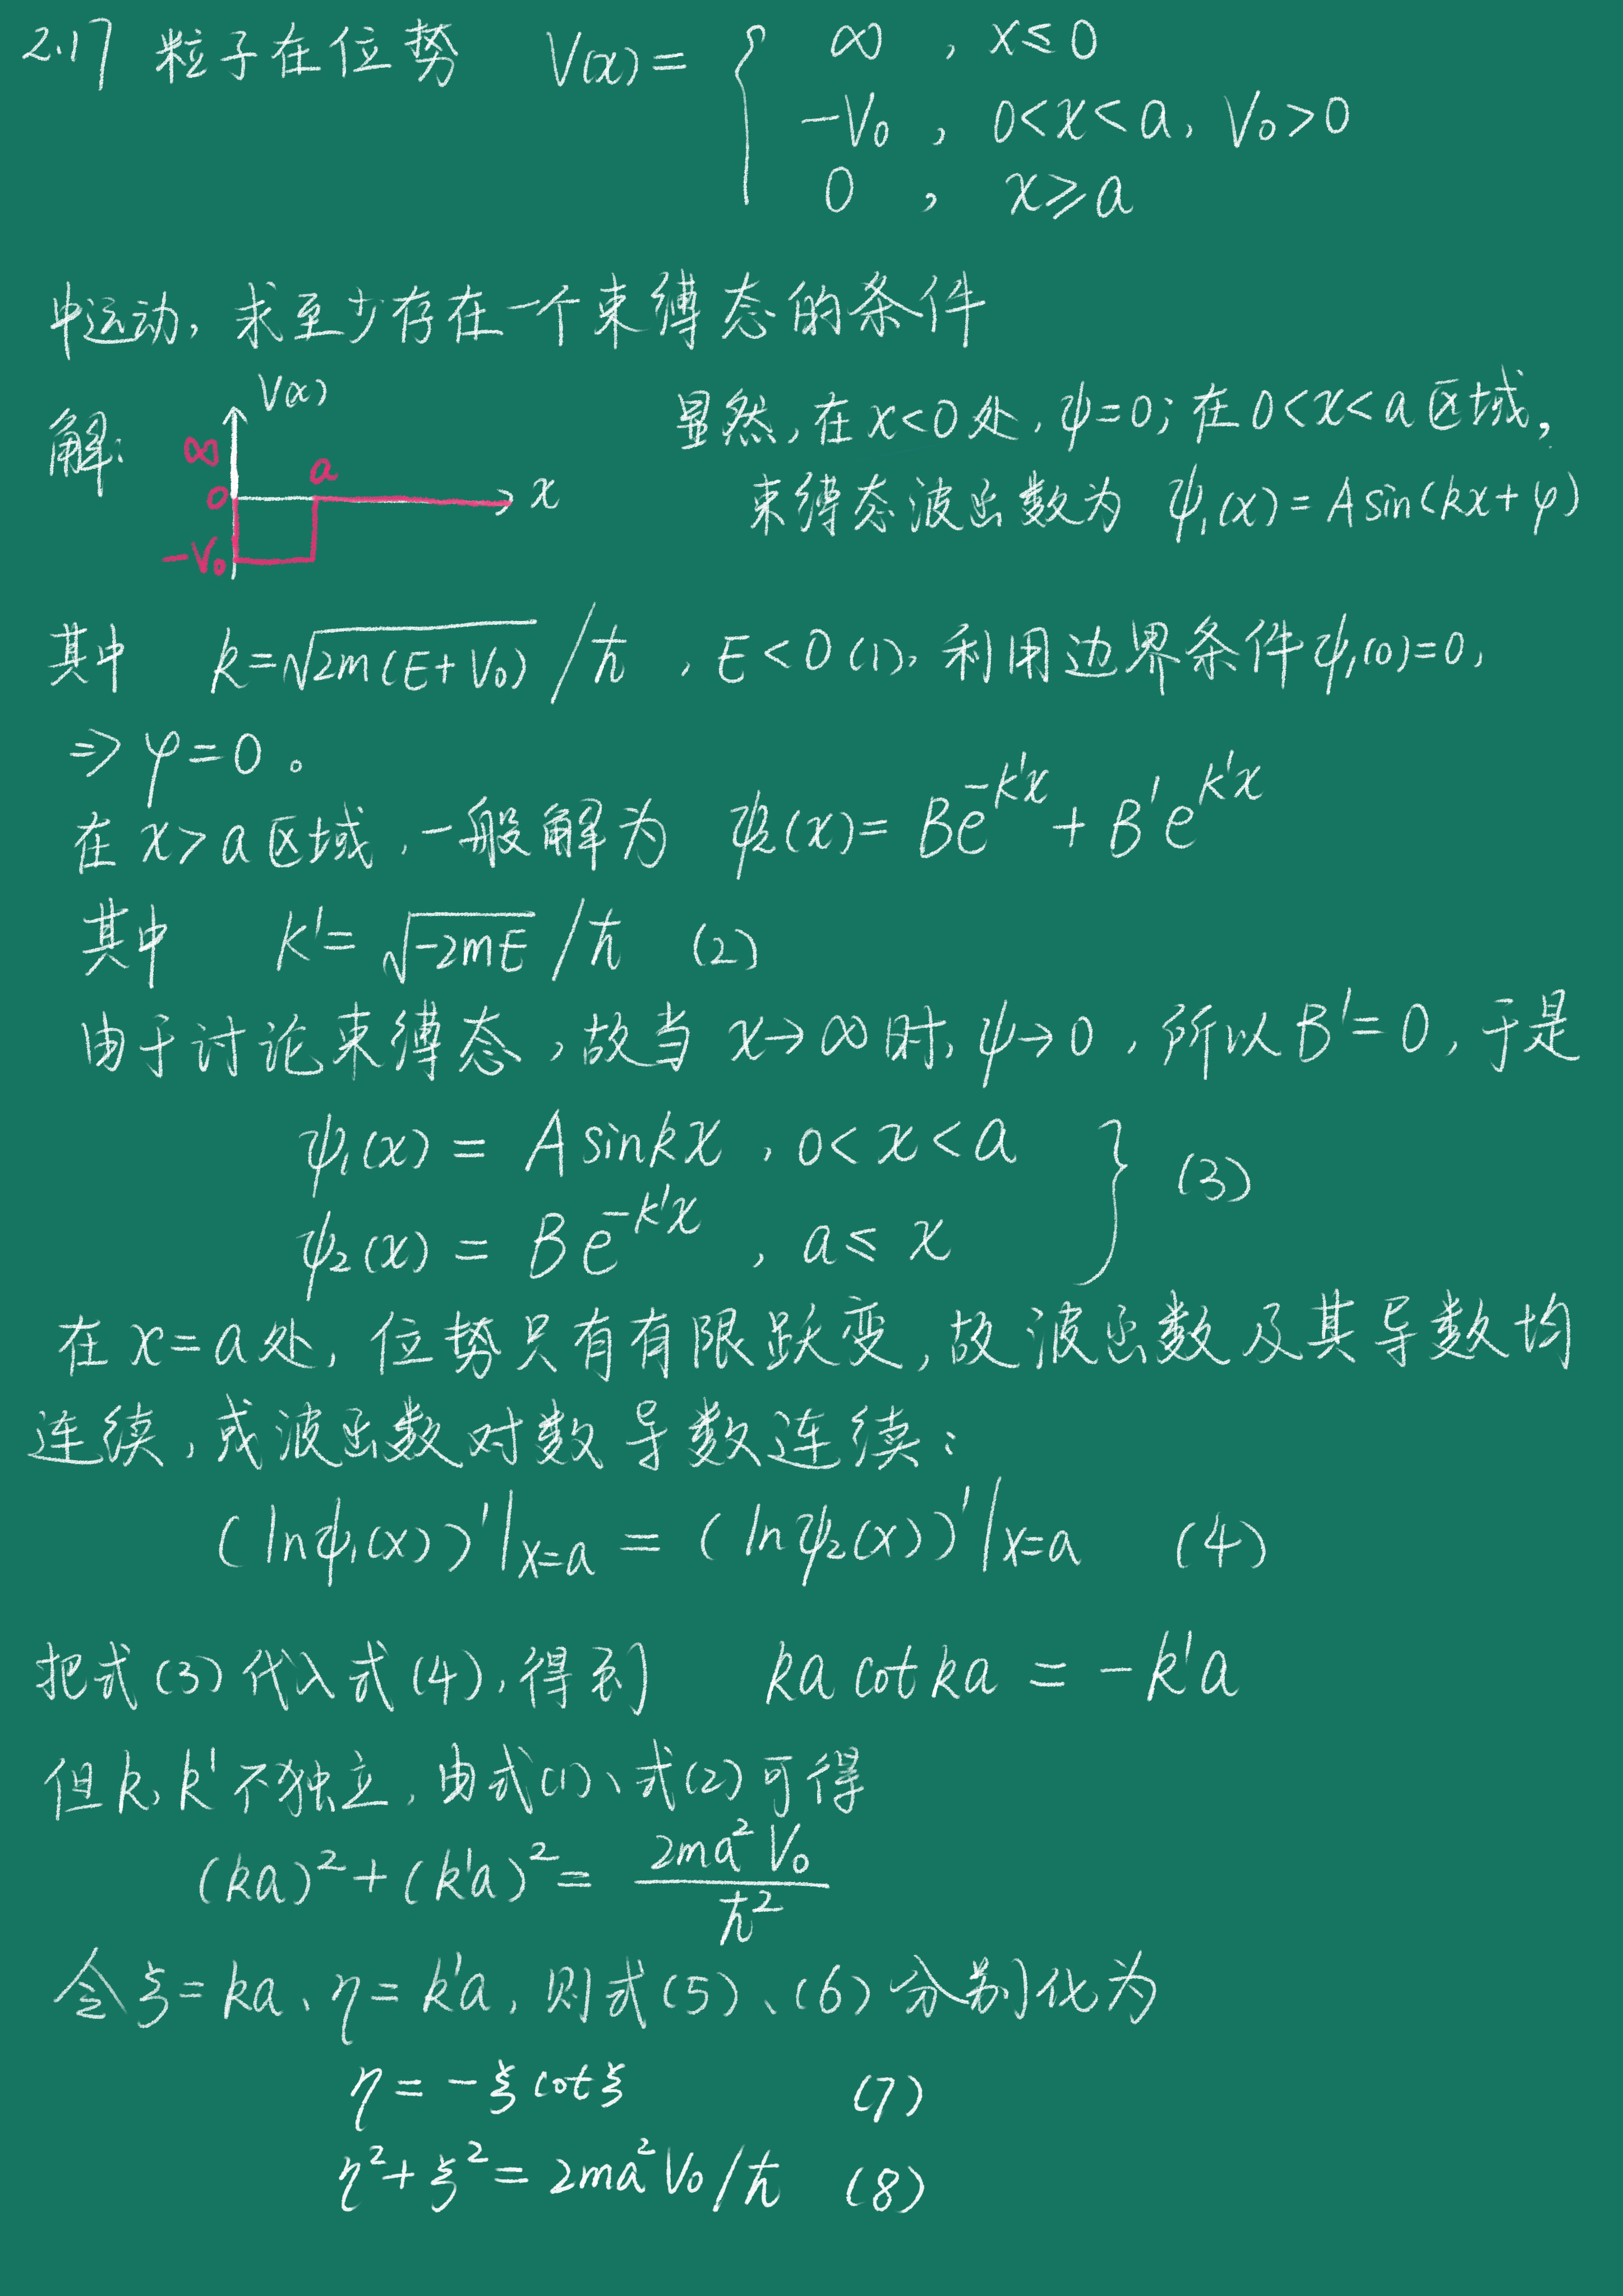 2.17 粒子在位势 V(x) = { ∞ , x ≤ 0
-V₀ , 0<x<a, V₀>0
0 , x ≥ a
中运动, 求至少存在一个束缚态的条件
解:
V(x)
∞
0
a
x
-V₀
显然, 在 x<0 处, ψ=0; 在 0<x<a 区域,
束缚态波函数为 ψ₁(x) = A sin(kx+φ)
其中 k=√(2m(E+V₀)) /ħ , E<0 (1), 利用边界条件 ψ₁(0)=0,
⇒ φ=0 。
在 x>a 区域, 一般解为 ψ₂(x) = Be^(-k'x) + B'e^(k'x)
其中 k' = √(-2mE) /ħ (2)
由于讨论束缚态, 故当 x→∞ 时, ψ→0, 所以 B'=0, 于是
ψ₁(x) = A sinkx , 0<x<a
ψ₂(x) = Be^(-k'x) , a ≤ x } (3)
在 x=a 处, 位势只有有限跃变, 故波函数及其导数均
连续, 或波函数对数导数连续:
(lnψ₁(x))'|x=a = (lnψ₂(x))'|x=a (4)
把式(3)代入式(4), 得到 ka cot ka = -k'a
但 k, k' 不独立, 由式(1)、式(2)可得
(ka)² + (k'a)² = 2ma²V₀/ħ²
令 ξ=ka、η=k'a, 则式(5)、(6)分别化为
η = -ξ cot ξ (7)
η²+ξ² = 2ma²V₀/ħ (8)